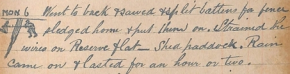 MON 6 Went to back & sawed & split battens for fence
sledged home & put them on. Strained the
wires on Reserve flat - Shed paddock. Rain
came on & lasted for an hour or two.